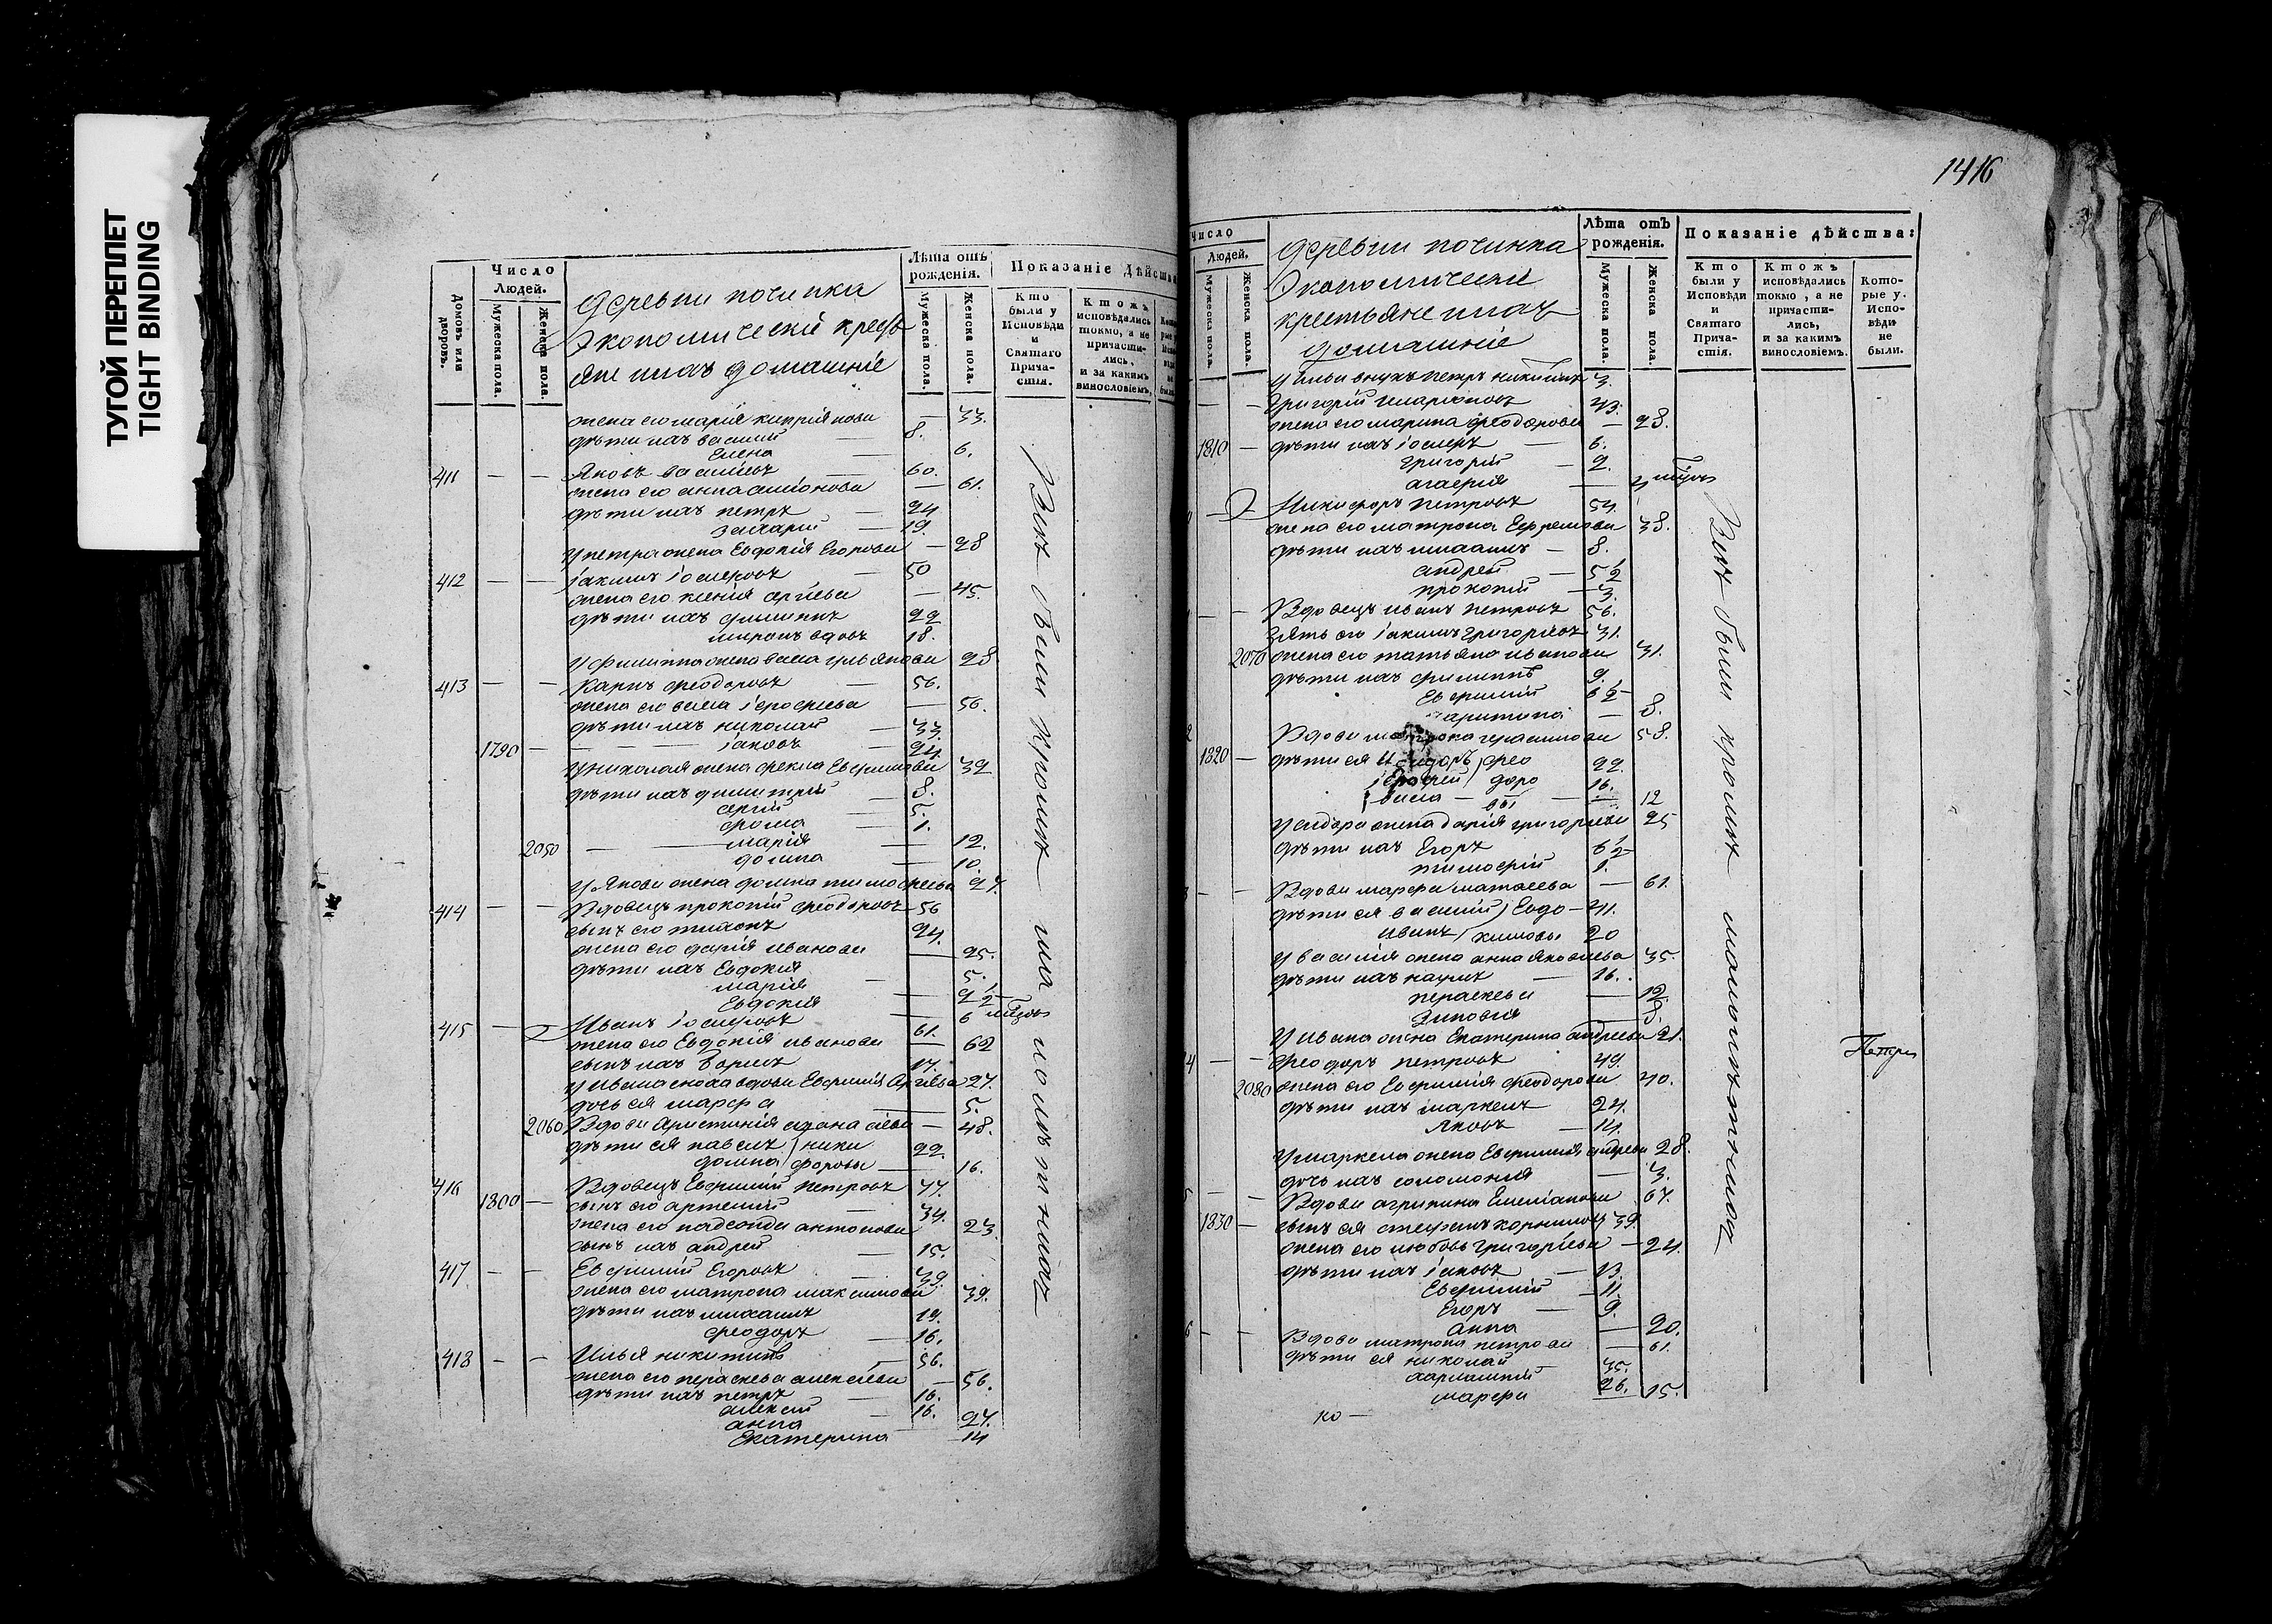 ТУГОЙ ПЕРЕПЛЕТ
TIGHT BINDING
Домовъ или дворовъ.
Число Людей.
Мужеска пола.
Женска пола.
деревни починка
Экономическiи кресть
яне ихъ домашнiе
Лѣта отъ рожденiя.
Мужеска пола.
Женска пола.
Показанiе Дѣйства
Кто были у Исповѣди и Святаго Причастiя.
Ктожъ исповѣдались токмо, а не причастились, и за какимъ винословiемъ.
жена его марiя киприянова — 33.
дѣти ихъ василiй — 8.
Елена 6.
411 — — Яковъ васильевъ 60.
жена его анна — 61.
дѣти ихъ петръ — 24
захарiй — 19.
у петра жена Евдокiя Егорова — 28
412 — — Iакимъ Iосифовъ — 50
жена его ксенiя — 45.
дѣти ихъ филиппъ 22
миронъ вдовъ 18.
у филиппа жена васса ульянова 28
413 — — Карпъ феодоровъ — 56.
жена его васса Iерофиева — 56.
дѣти ихъ николай — 33.
1790 — Iаковъ — 24.
у николая жена фекла Евфимова 32
дѣти ихъ димитрiй — 8.
сергiй — 5.
фома — 1.
2050 — марiя — 12.
домна — 10.
у Якова жена домна тимофеева 27.
414 — — Вдовецъ прокопiй феодоровъ — 56
сынъ его 24.
жена его дарiя иванова — 25.
дѣти ихъ Евдокiя 5.
марiя — 2 1/2
Евдокiя — 6 мцовъ
415 — — Иванъ Iосифовъ 61.
жена его Евдокiя иванова — 62
сынъ ихъ борисъ 17.
у ивана сноха вдова Евфимiя 27.
дочь ея марфа — 5.
2060 Вдова — 48.
дѣти ея павелъ ники 22.
домна форовы — 16.
416 Вдовецъ Евфимiй петровъ 77.
1800 — сынъ его артемiй — 34.
жена его антонова 23.
сынъ ихъ андрей — 15.
417 — — Евфимiй Егоровъ — 39.
жена его матрона максимова 39.
дѣти ихъ михаилъ 19.
феодоръ — 16.
418 — — Илья никитинъ — 56.
жена его параскева алексiева — 56.
дѣти ихъ петръ — 16.
алексiй — 16.
анна 27.
Екатерина 14
Всѣ были кромѣ малолѣтныхъ
1416
Число Людей.
Мужеска пола.
Женска пола.
деревни починка
Экономическiе
крестьяне ихъ
домашнiе
Лѣта отъ рожденiя.
Мужеска пола.
Женска пола.
Показанiе дѣйства:
Кто были у Исповѣди и Святаго Причастiя.
Ктожъ исповѣдались токмо, а не причастились, и за какимъ винословiемъ.
Которые у Исповѣди не были.
у ильи внукъ петръ никитинъ 3.
— — Григорiй
жена его марина феодорова — 28.
1810 — дѣти ихъ Iосифъ — 6.
григорiй — 2.
— мцовъ
— Никифоръ петровъ 54.
жена его матрона Ефремова 38.
дѣти ихъ михаилъ — 8.
андрей — 5 1/2
прокопiй — 3.
— Вдовецъ иванъ петровъ 56.
зять его Iакимъ григорьевъ 31.
2070 жена его татьяна иванова 31.
дѣти ихъ филиппъ 9.
Евфимiй 6 1/2
— 8.
Вдова герасимова 58.
1820 — дѣти ея фео 22.
доро 16.
васса — вы — 12
у сидора жена дарiя григорьева 25
дѣти ихъ Егоръ 6 1/2
тимофiй 1.
— — Вдова марфа матвеева — 61.
дѣти ея василiй Евдо — 41.
иванъ кимовы 20
у василiя жена анна Яковлева 35
дѣти ихъ наумъ — 16.
параскева — 12.
Зиновiя — 3.
у ивана жена Екатерина андреева 21.
4 — — феодоръ петровъ 49.
2080 жена его Евфимiя феодорова 40.
дѣти ихъ маркелъ 24.
Яковъ — 14.
у маркела жена Евфимiя андреева 28.
дочь ихъ соломонiя — 3.
— — Вдова агрипина Емелiанова 67.
1830 — сынъ ея стефанъ корниловъ 39.
жена его любовь григорiева — 24.
дѣти ихъ Iаковъ — 13.
Евфимiй — 11.
Егоръ — 9.
анна — 20.
6 — — Вдова матрона петрова — 61.
дѣти ея николай 35.
харлампiй 26.
марфа — 15.
ко —
Всѣ были кромѣ малолѣтныхъ